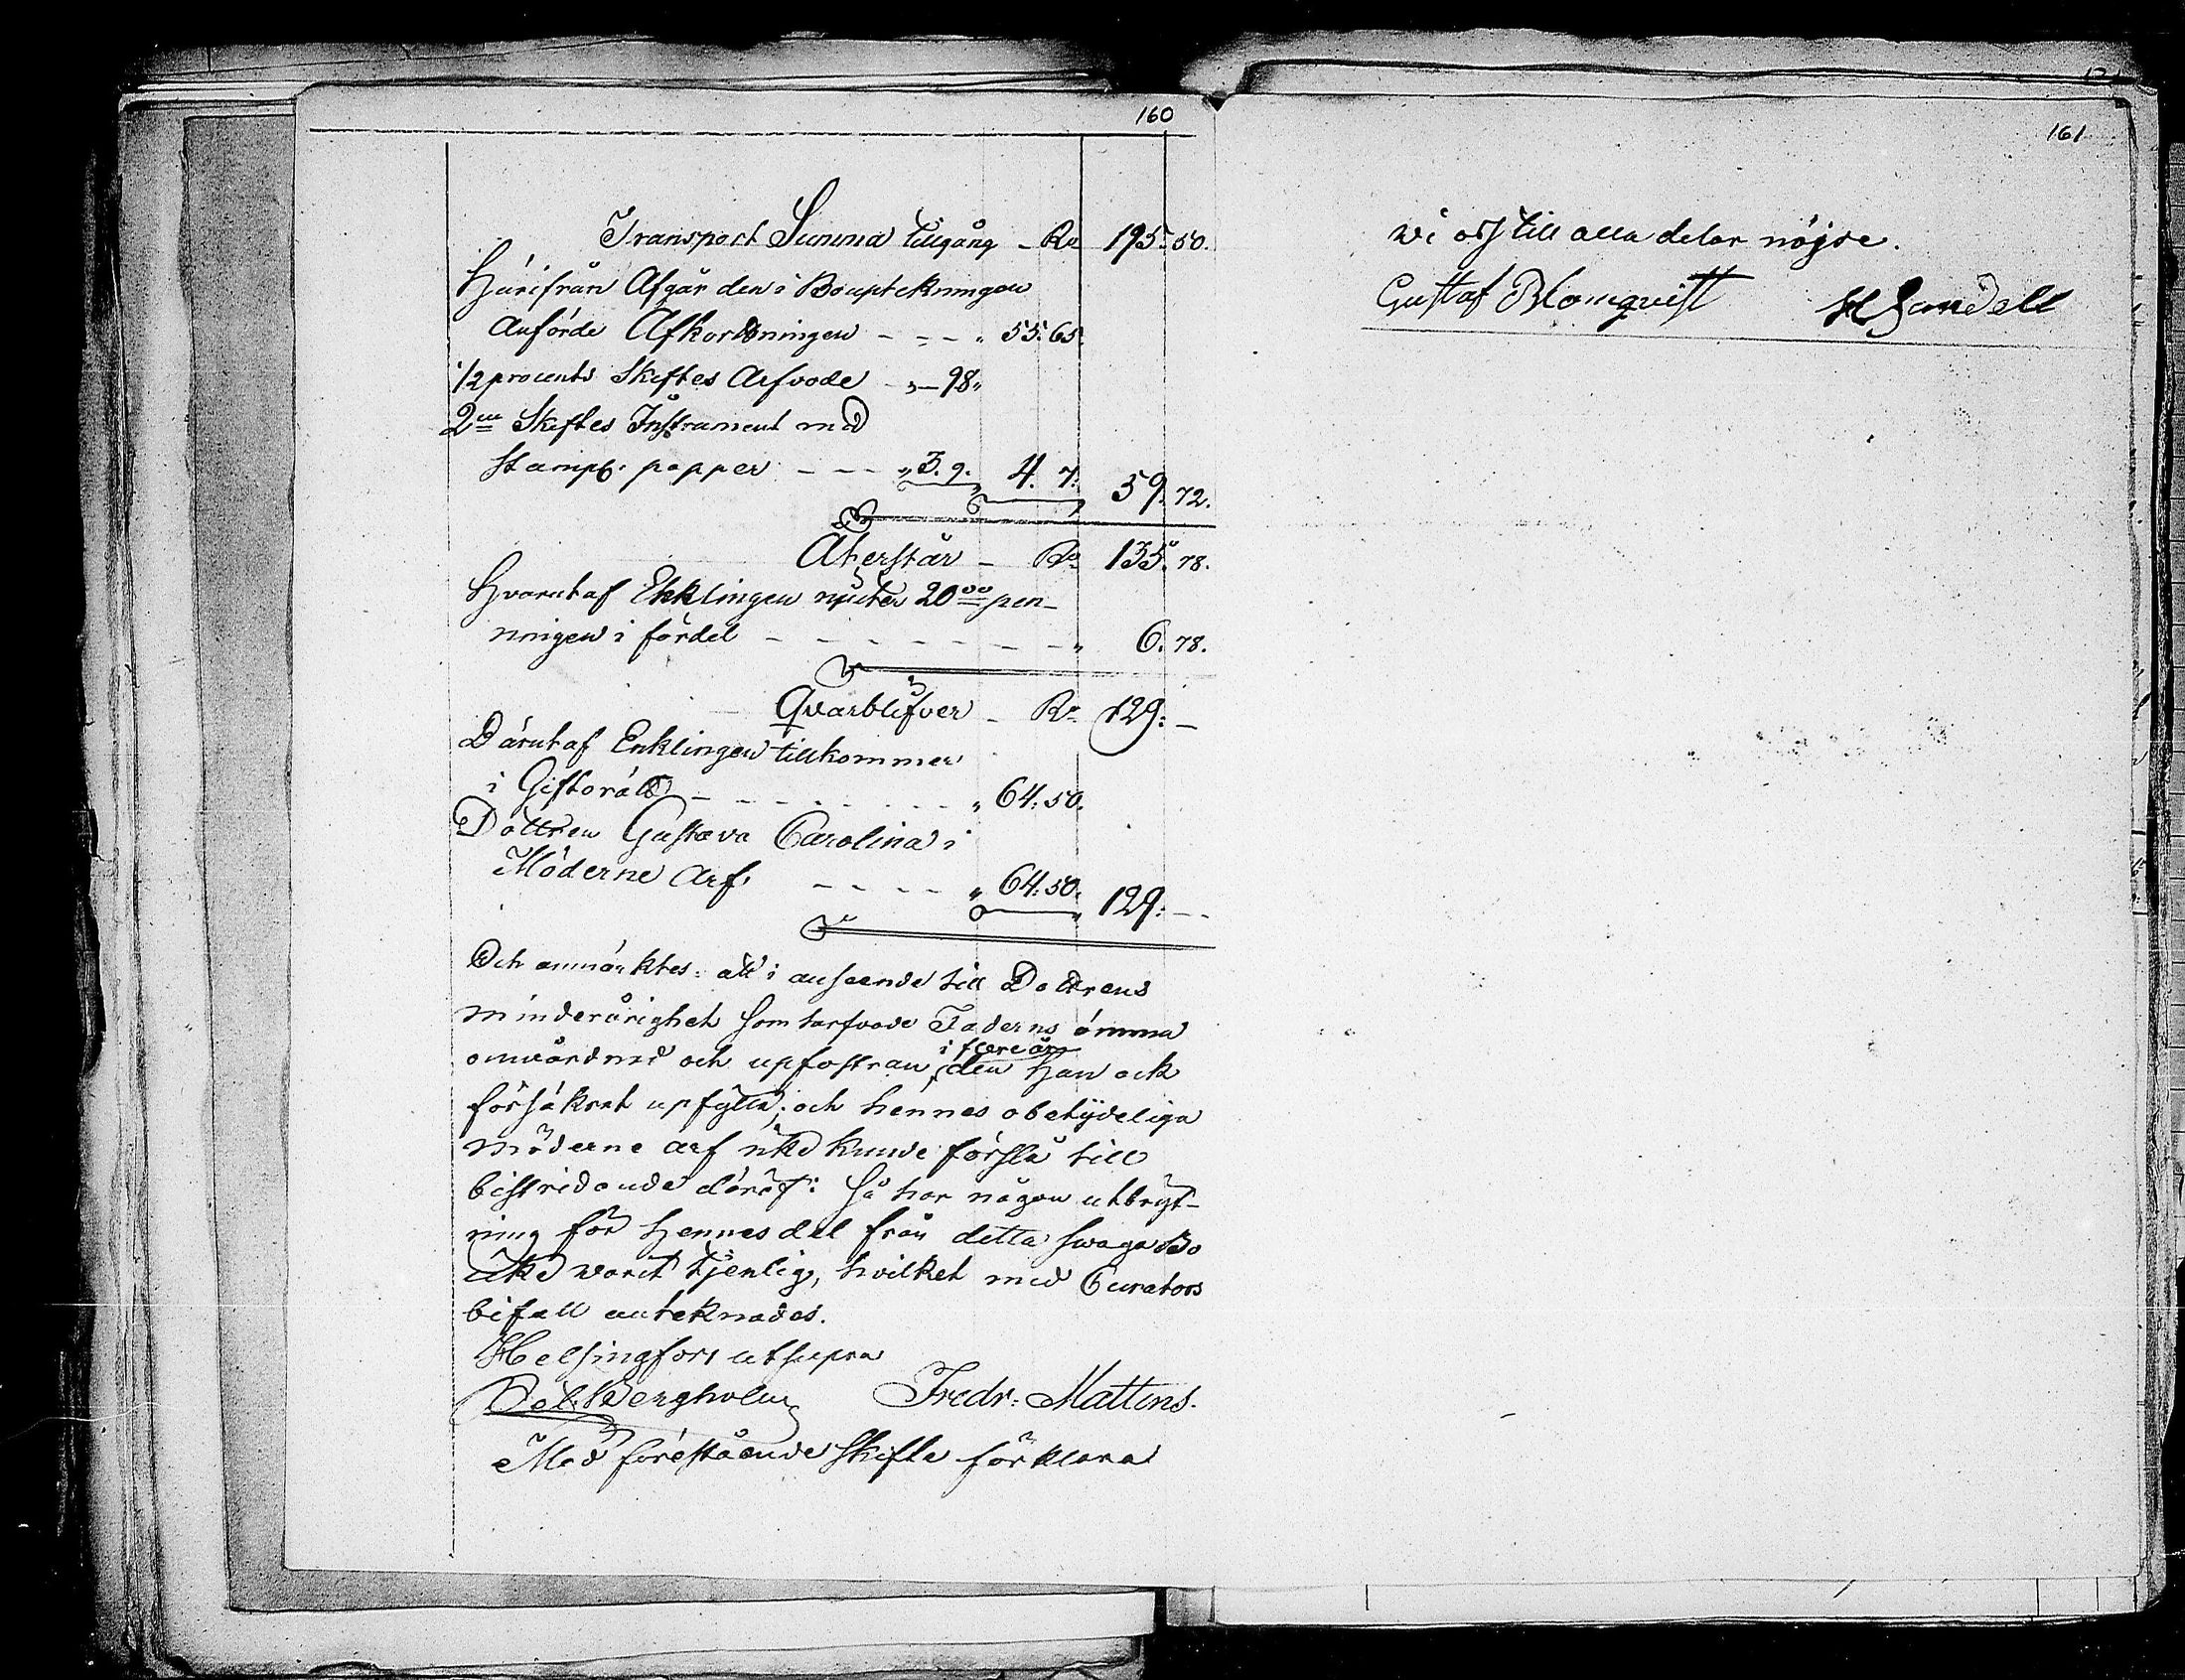 160
Transport Summa tillgång - Ro 195. 50.
Härifrån Afgår den i Bouptekningen
anförde Afkortningen - - - " 55. 65.
1/2 procents Skiftes Arfvode " - 98 "
2ne Skiftes Instrument med
stamp. papper - - - " 3. 9. 4. 7. 59. 72.
Återstår - Ro 135. 78.
Hvarutaf Enklingen njuter 20de pen-
ningen i fördel - - - - - - - " 6. 78.
Qvarblifver - Ro 129: -
Därutaf Enklingen tillkommer
i Giftorätt - - - - - - - " 64: 50.
Dottren Gustava Carolina i
Möderne Arf - - - - " 64: 50. 129: - -
Och anmärktes: att i anseende till Dottrens
minderårighet som tarfvade Faderns ömma
i flere år
omvårdnad och upfostran, den Han ock
försäkrat upfylla; och hennes obetydeliga
möderne arf icke kunde förslå till
bestridande däraf: så har någon utbryt-
ning för Hennes del från detta swaga Bo
icke warit tjenlig, hvilket med Curators
bifall anteknades.
Helsingfors utsupra
Bergholm Fredr: Mattens.
Med förestående Skifte förklara
161
wi oss till alla delar nöjde.
Gustaf Blomqvist H Sandell